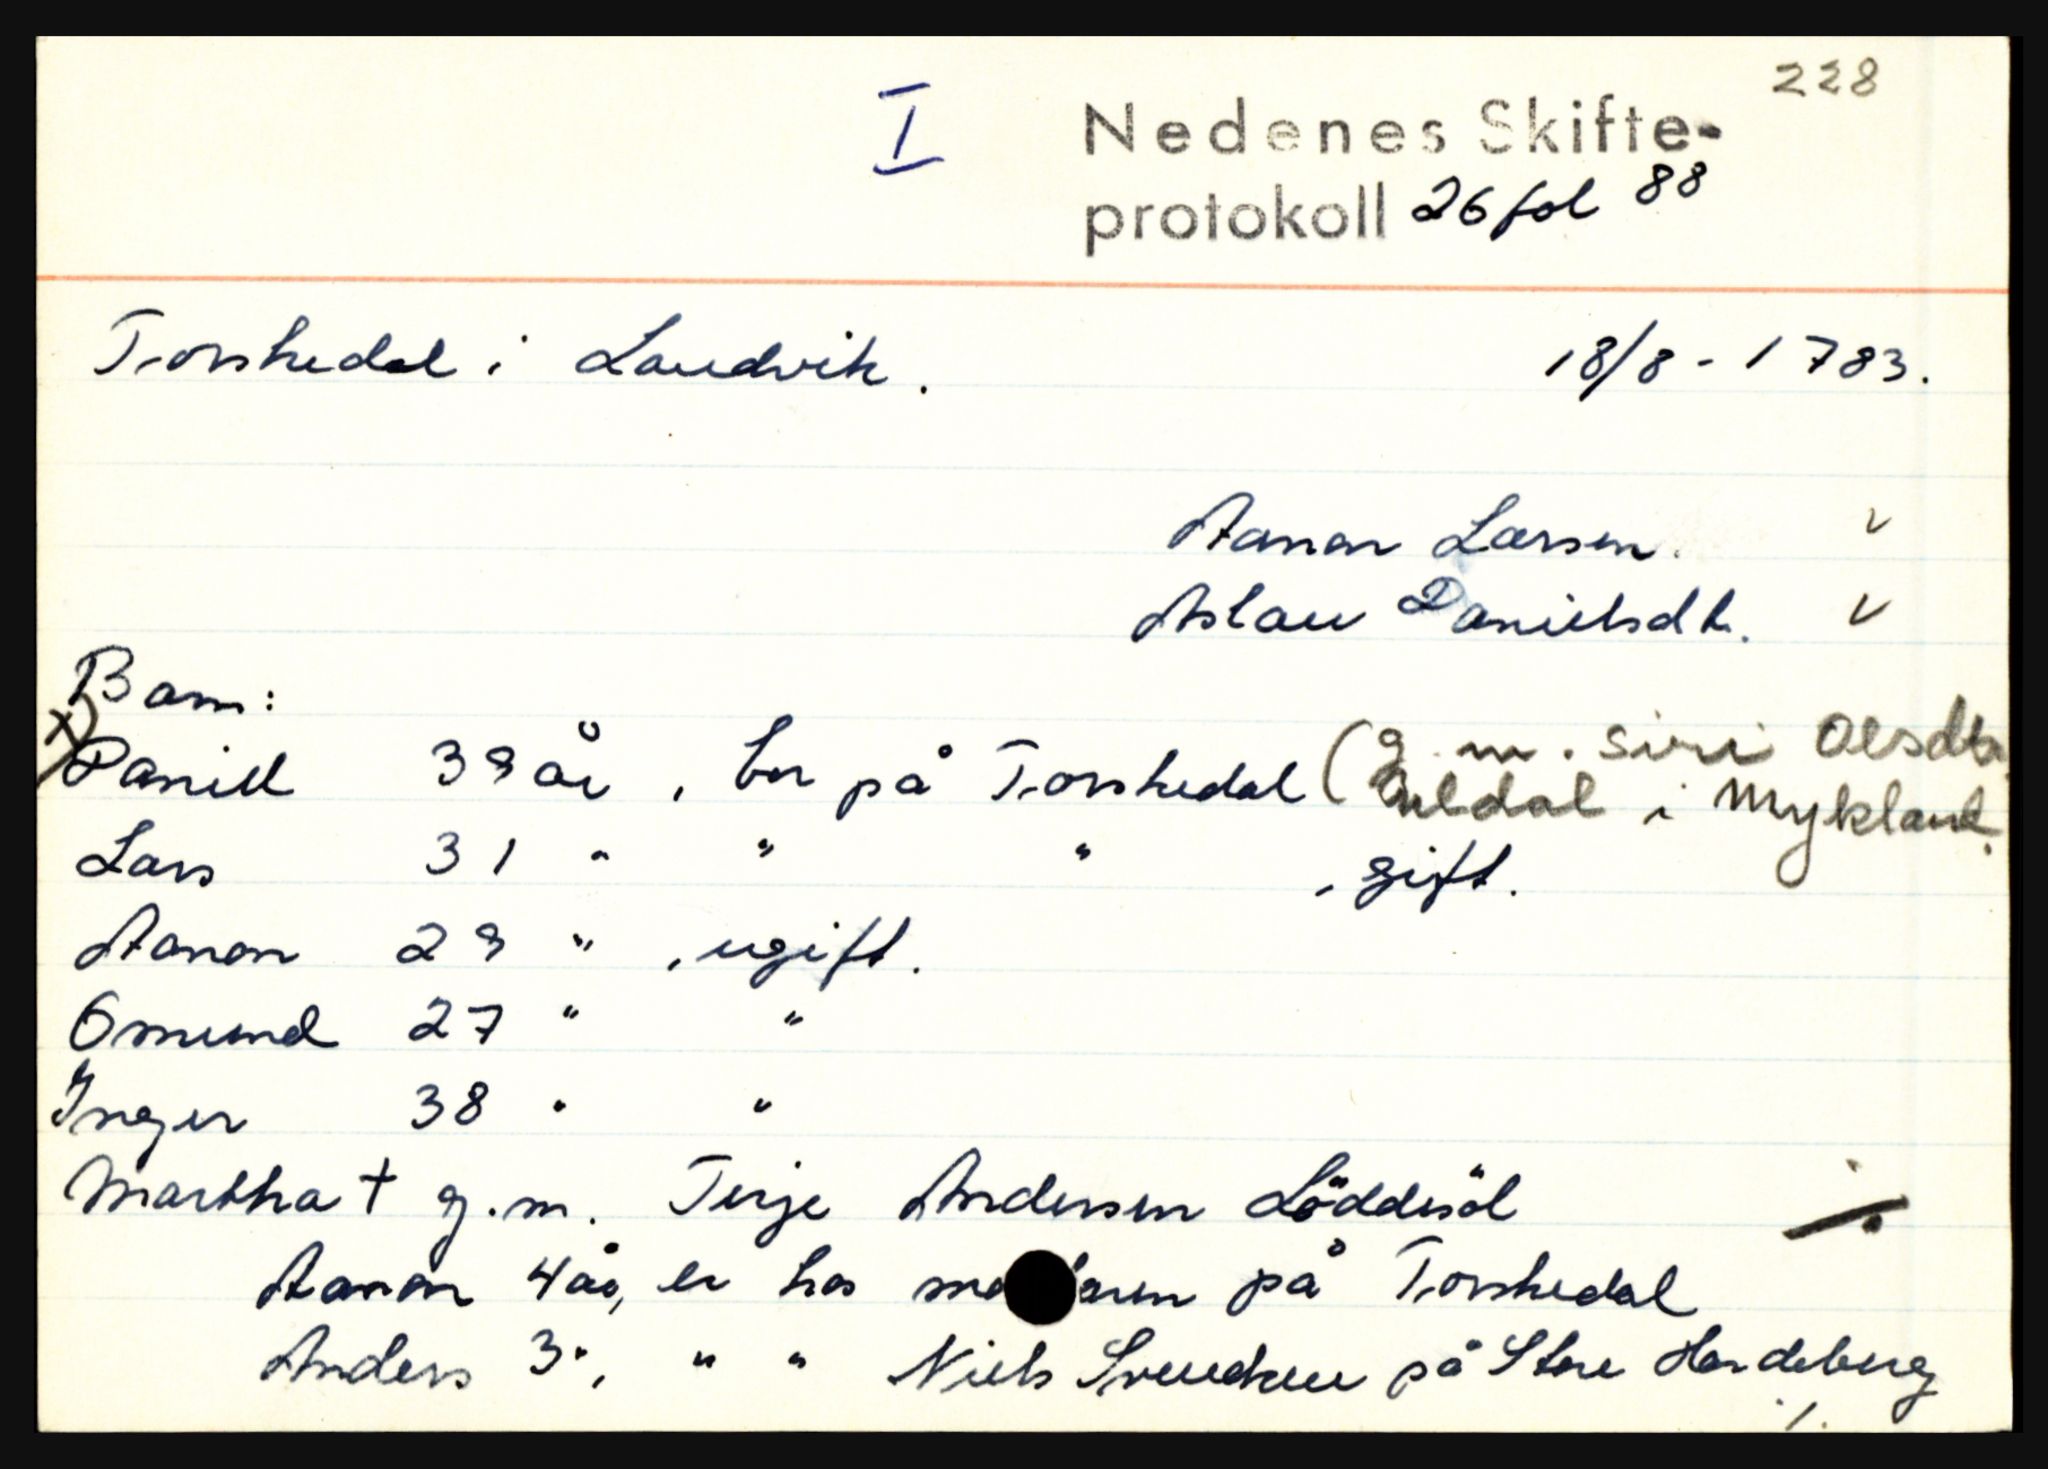 228
I
Nedenes Skifte-
protokoll 26 fol 88
Torskedal i Landvik.
18/8 - 1783.
Aanon Larsen. v
Aslau Danielsdtr. v
Barn:
x) Daniel 39 år, bor på Torskedal (g. m. Siri Olsdtr.
Uldal i Mykland.
Lars 31 " " " , gift.
Aanon 29 " , ugift.
Omund 27 " "
Inger 38 " "
Martha † g.m. Terje Andersen Löddesöl
Aanon 4 år, er hos morfaren på Torskedal
Anders 3 ", " " Niels Svendsen på Store Hardeberg
./.